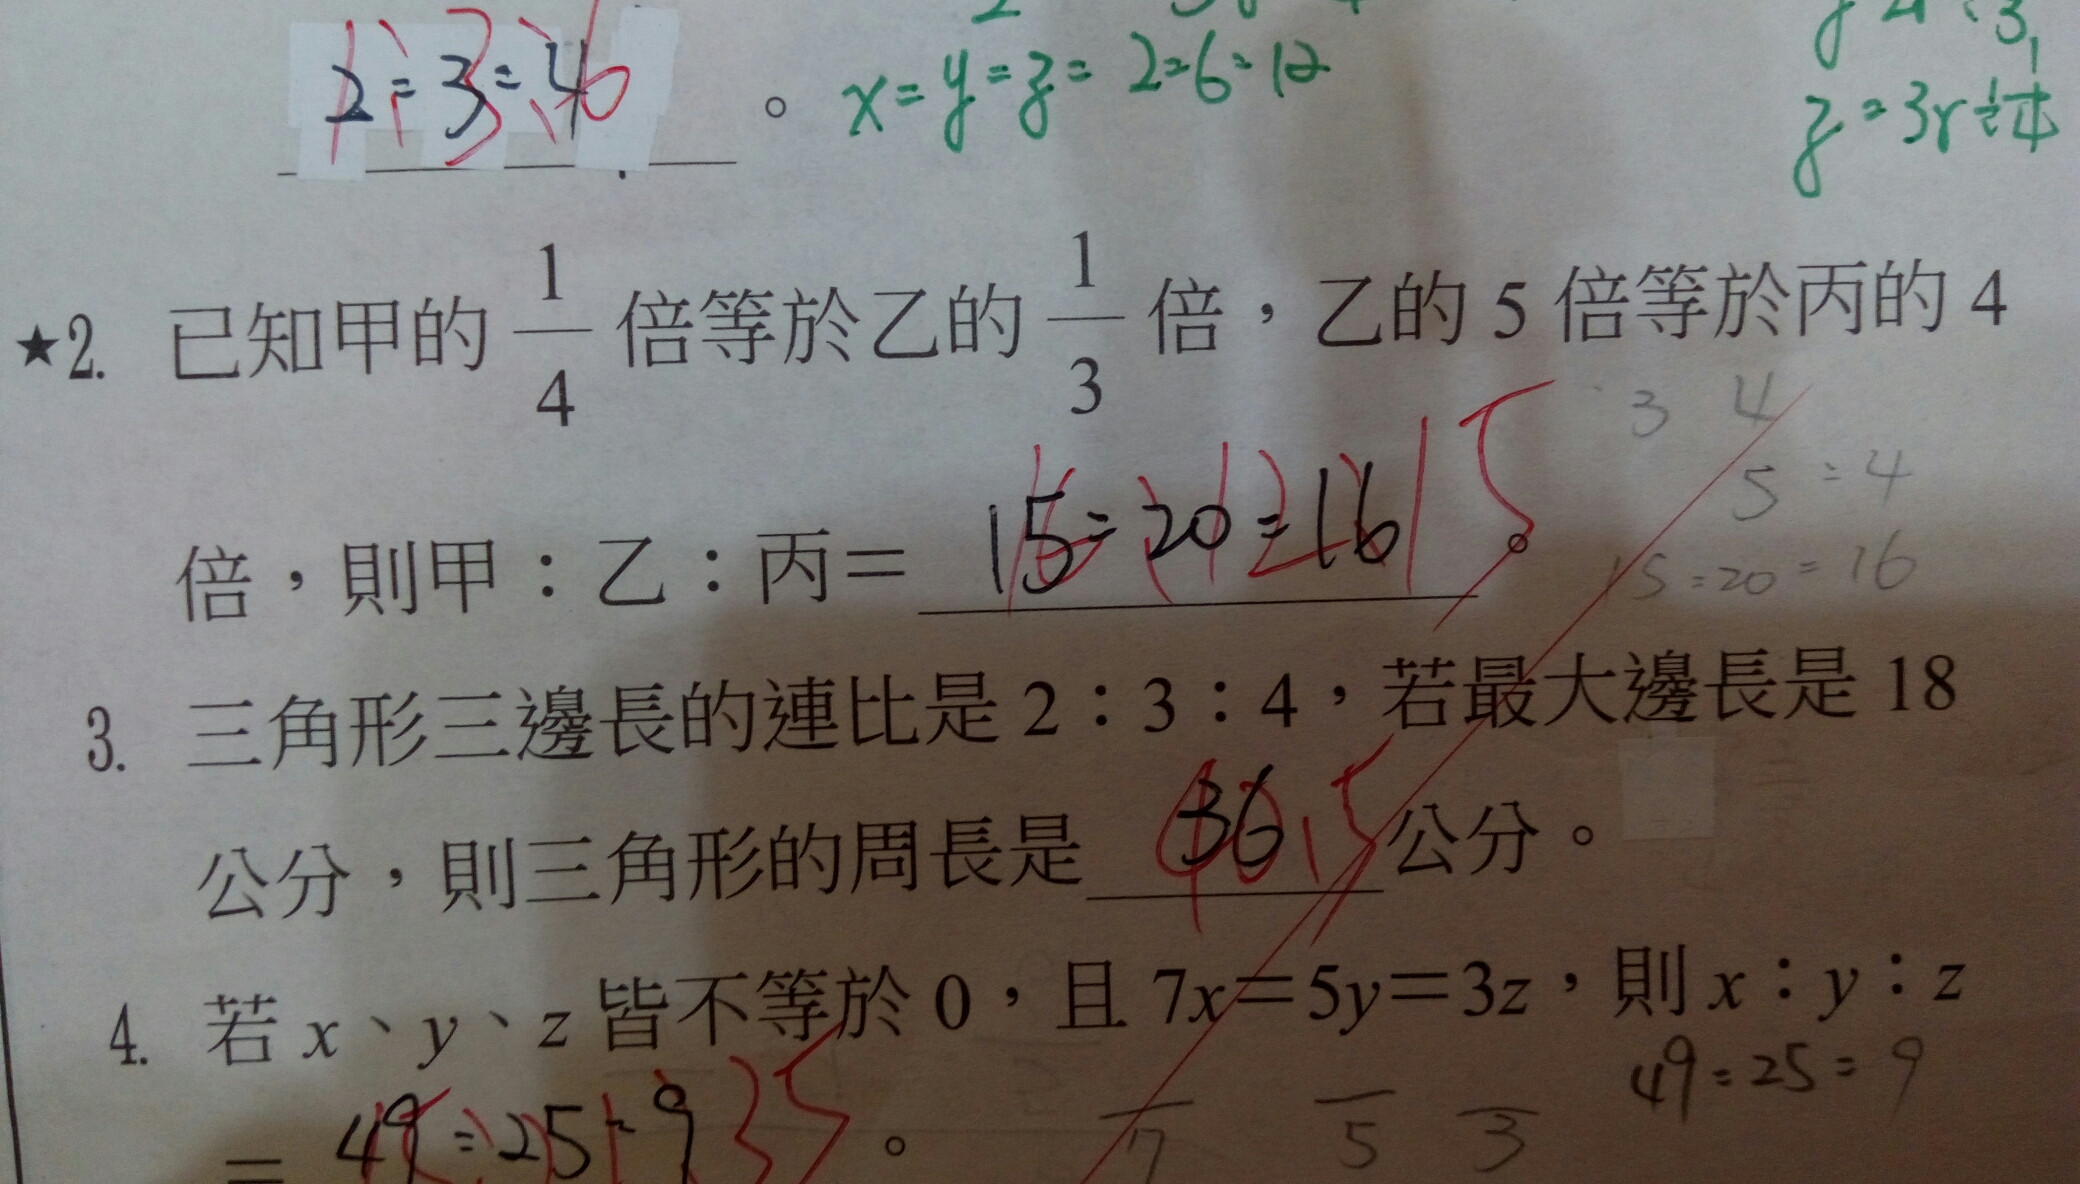 2:3:4
1:3:6
。 x:y:z=2:6:12
★2. 已知甲的 1/4 倍等於乙的 1/3 倍，乙的 5 倍等於丙的 4
3 4
5:4
倍，則甲：乙：丙＝15:20:16。
16:12:15
15:20:16
3. 三角形三邊長的連比是 2：3：4，若最大邊長是 18
公分，則三角形的周長是 36 公分。
40.5
4. 若 x、y、z 皆不等於 0，且 7x＝5y＝3z，則 x：y：z
49:25:9
＝49:25:9。
7 5 3